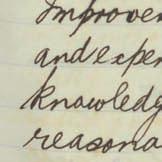 Improve
and exper
knowledg
reasona